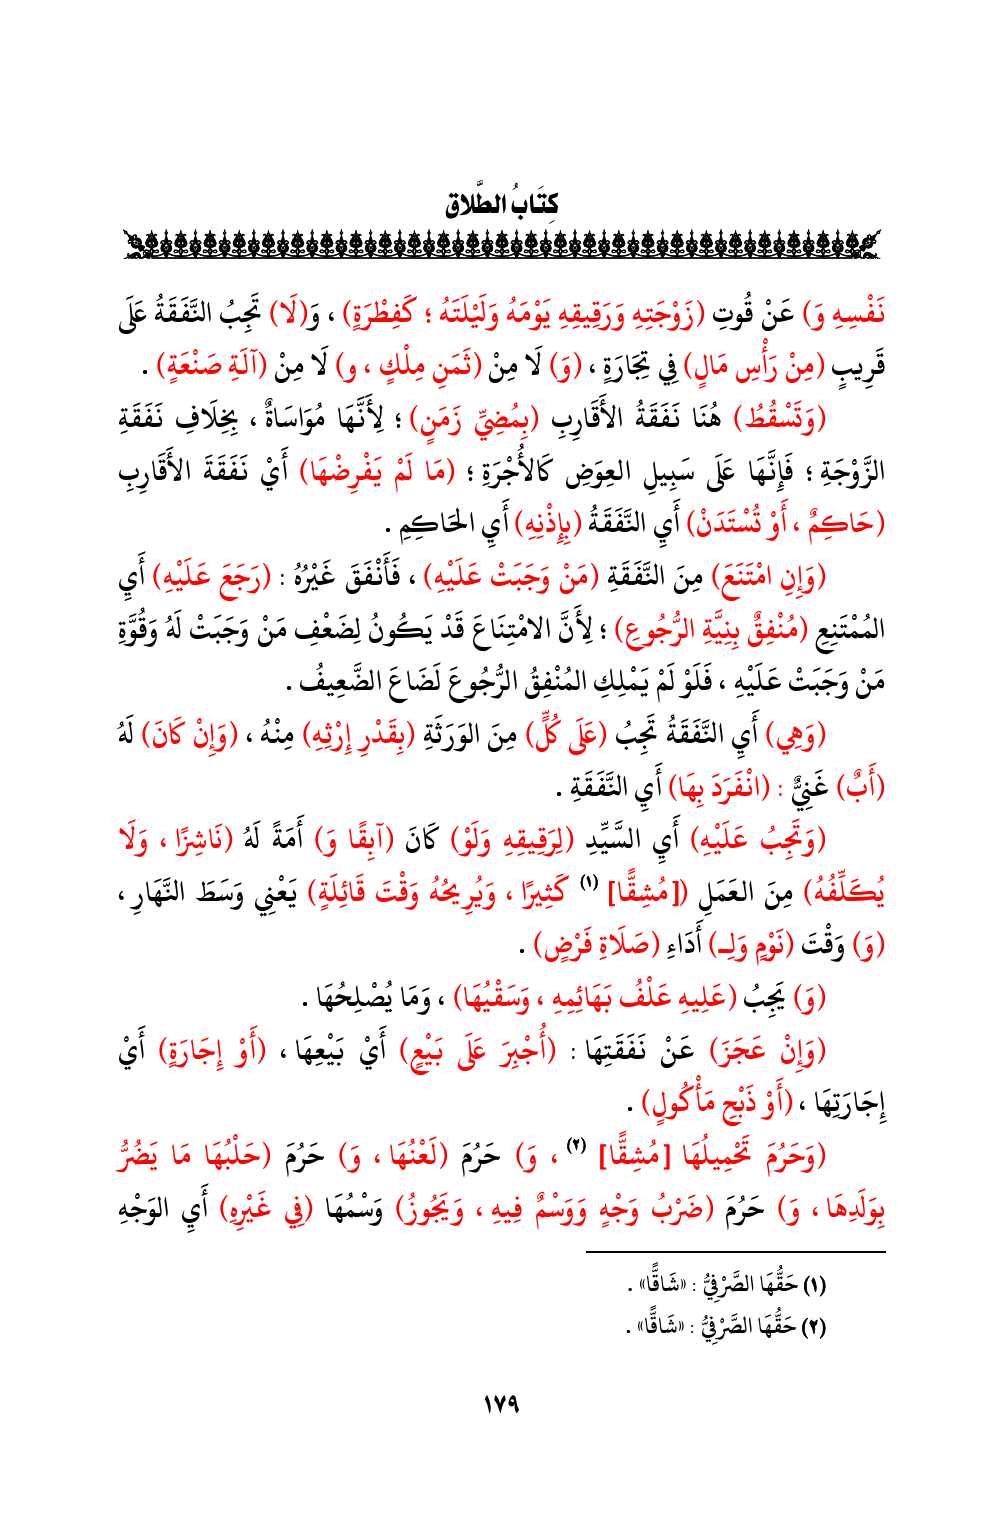 كِتَابُ الطَّلاق
نَفْسِهِ وَ) عَنْ قُوتِ (زَوْجَتِهِ وَرَقِيقِهِ يَوْمَهُ وَلَيْلَتَهُ ؛ كَفِطْرَةٍ) ، وَ(لَا) تَجِبُ النَّفَقَةُ عَلَى
قَرِيبٍ (مِنْ رَأْسِ مَالٍ) فِي تِجَارَةٍ ، (وَ) لَا مِنْ (ثَمَنِ مِلْكٍ ، و) لَا مِنْ (آلَةِ صَنْعَةٍ) .
(وَتَسْقُطُ) هُنَا نَفَقَةُ الأَقَارِبِ (بِمُضِيِّ زَمَنٍ) ؛ لِأَنَّهَا مُوَاسَاةٌ ، بِخِلَافِ نَفَقَةِ
الزَّوْجَةِ ؛ فَإِنَّهَا عَلَى سَبِيلِ العِوَضِ كَالأُجْرَةِ ؛ (مَا لَمْ يَفْرِضْهَا) أَيْ نَفَقَةَ الأَقَارِبِ
(حَاكِمٌ ، أَوْ تُسْتَدَنْ) أَيِ النَّفَقَةُ (بِإِذْنِهِ) أَيِ الحَاكِمِ .
(وَإِنِ امْتَنَعَ) مِنَ النَّفَقَةِ (مَنْ وَجَبَتْ عَلَيْهِ) ، فَأَنْفَقَ غَيْرُهُ : (رَجَعَ عَلَيْهِ) أَيِ
المُمْتَنِعِ (مُنْفِقٌ بِنِيَّةِ الرُّجُوعِ) ؛ لِأَنَّ الامْتِنَاعَ قَدْ يَكُونُ لِضَعْفِ مَنْ وَجَبَتْ لَهُ وَقُوَّةِ
مَنْ وَجَبَتْ عَلَيْهِ ، فَلَوْ لَمْ يَمْلِكِ المُنْفِقُ الرُّجُوعَ لَضَاعَ الضَّعِيفُ .
(وَهِي) أَيِ النَّفَقَةُ تَجِبُ (عَلَى كُلٍّ) مِنَ الوَرَثَةِ (بِقَدْرِ إِرْثِهِ) مِنْهُ ، (وَإِنْ كَانَ) لَهُ
(أَبٌ) غَنِيٌّ : (انْفَرَدَ بِهَا) أَيِ النَّفَقَةِ .
(وَتَجِبُ عَلَيْهِ) أَيِ السَّيِّدِ (لِرَقِيقِهِ وَلَوْ) كَانَ (آبِقًا وَ) أَمَةً لَهُ (نَاشِزًا ، وَلَا
يُكَلِّفُهُ) مِنَ العَمَلِ ([مُشِقًّا] (١) كَثِيرًا ، وَيُرِيحُهُ وَقْتَ قَائِلَةٍ) يَعْنِي وَسَطَ النَّهَارِ ،
(وَ) وَقْتَ (نَوْمٍ وَلِـ) أَدَاءِ (صَلَاةِ فَرْضٍ) .
(وَ) يَجِبُ (عَلِيهِ عَلْفُ بَهَائِمِهِ ، وَسَقْيُهَا) ، وَمَا يُصْلِحُهَا .
(وَإِنْ عَجَزَ) عَنْ نَفَقَتِهَا : (أُجْبِرَ عَلَى بَيْعٍ) أَيْ بَيْعِهَا ، (أَوْ إِجَارَةٍ) أَيْ
إِجَارَتِهَا ، (أَوْ ذَبْحِ مَأْكُولٍ) .
(وَحَرُمَ تَحْمِيلُهَا [مُشِقًّا] (٢) ، وَ) حَرُمَ (لَعْنُهَا ، وَ) حَرُمَ (حَلْبُهَا مَا يَضُرُّ
بِوَلَدِهَا ، وَ) حَرُمَ (ضَرْبُ وَجْهٍ وَوَسْمٌ فِيهِ ، وَيَجُوزُ) وَسْمُهَا (فِي غَيْرِهِ) أَيِ الوَجْهِ
(١) حَقُّهَا الصَّرْفِيُّ : «شَاقًّا» .
(٢) حَقُّهَا الصَّرْفِيُّ : «شَاقًّا» .
١٧٩